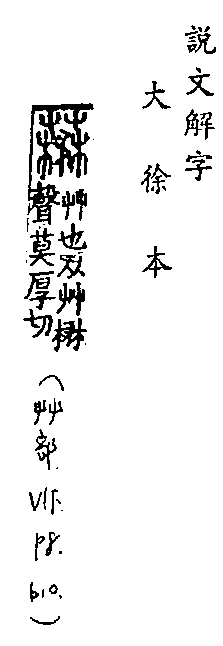 說文解字
大徐本
艸也从艸楙
聲莫厚切
(艸部. V1下. P8. b10.)